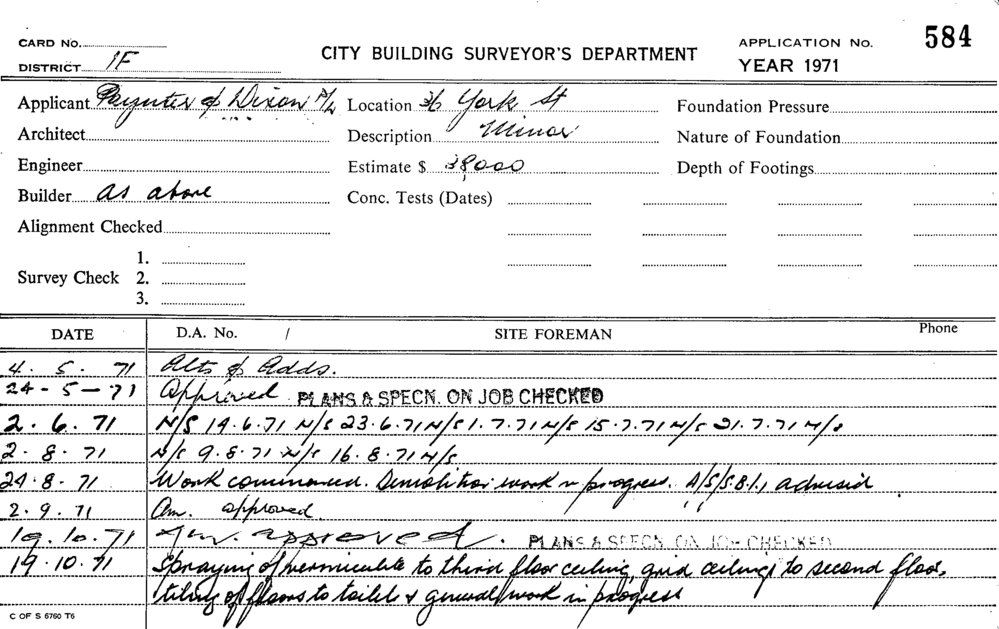 CARD NO.
DISTRICT 1F
CITY BUILDING SURVEYOR'S DEPARTMENT
APPLICATION No. 584
YEAR 1971
Applicant Paynter & Dixon P/L Location 36 York St Foundation Pressure
Architect Description Minor Nature of Foundation
Engineer Estimate $ 38,000 Depth of Footings
Builder as above Conc. Tests (Dates)
Alignment Checked
1.
Survey Check 2.
3.
DATE D.A. No. / SITE FOREMAN Phone
4. 5. 71 Alts & Adds.
24-5-71 Approved PLANS & SPECN. ON JOB CHECKED
2. 6. 71 N/S 14.6.71 N/S 23.6.71 N/S 1.7.71 N/S 15.7.71 N/S 21.7.71 N/S
2. 8. 71 N/S 9.8.71 N/S 16.8.71 N/S
24.8.71 Work commenced. Demolition work in progress. A/S/S.B.I., advised
2.9.71 Am. approved.
19.10.71 Am. approved. PLANS & SPECN. ON JOB CHECKED
19.10.71 Spraying of vermiculite to third floor ceiling, grid ceilings to second floor,
tiling of floors to toilets & general work in progress
C OF S 6760 T6